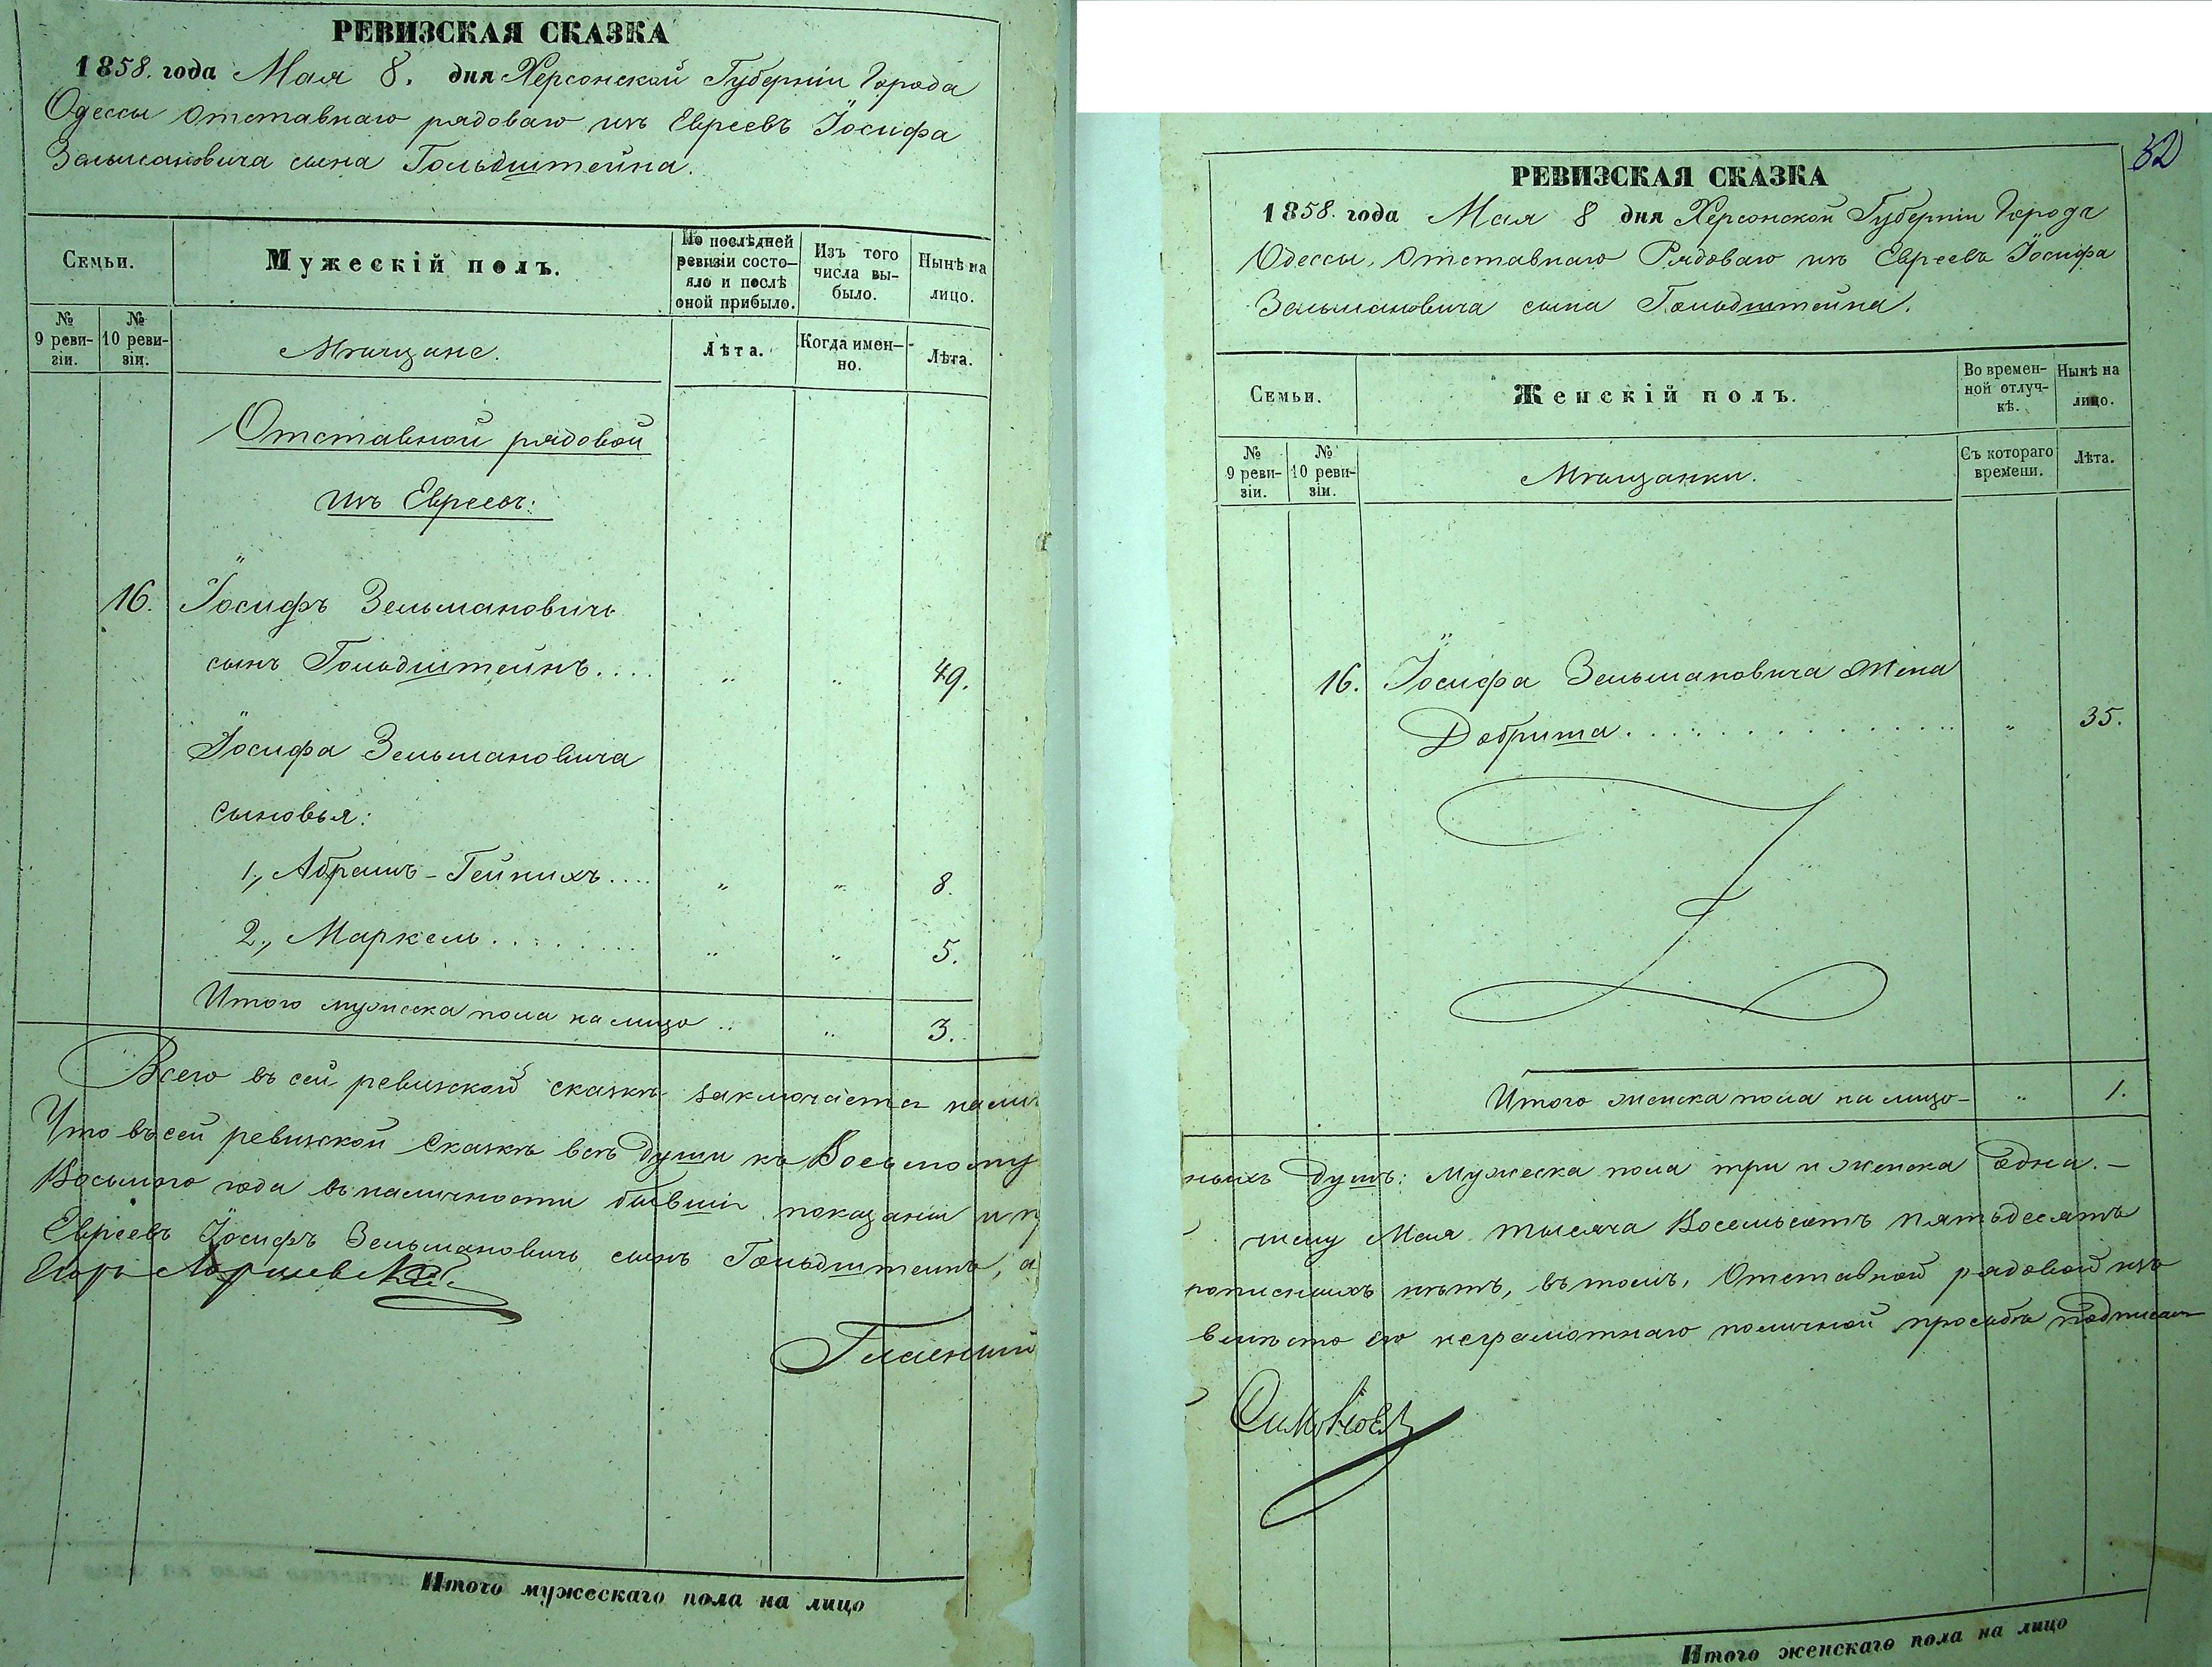 РЕВИЗСКАЯ СКАЗКА
1858. года Мая 8. дня Херсонской Губерніи Города
Одессы отставнаго рядоваго изъ Евреевъ Іосифа
Зельмановича сына Гольдштейна.
Семьи.
Мужескій полъ.
По послѣдней
ревизіи состо-
яло и послѣ
оной прибыло.
Изъ того
числа вы-
было.
Нынѣ на
лицо.
№
9 реви-
зіи.
№
10 реви-
зіи.
Мѣщане.
Лѣта.
Когда имен-
но.
Лѣта.
Отставной рядовой
изъ Евреевъ:
16. Іосифъ Зельмановичъ
сынъ Гольдштейнъ.... „ „ 49.
Іосифа Зельмановича
сыновья:
1., Абрамъ-Гейнихъ.... „ „ 8.
2., Маркель......... „ „ 5.
Итого мужеска пола на лицо .. „ 3.
Всего въ сей ревизской сказкѣ заключается налич
Что въ сей ревизской Сказкѣ всѣ души къ Восьмому
Восьмого года въ наличности бывшіе показаны и п
Евреевъ Іосифъ Зельмановичъ сынъ Гольдштейнъ, а
Егоръ
Гласный
Итого мужескаго пола на лицо
32
РЕВИЗСКАЯ СКАЗКА
1858. года Мая 8 дня Херсонской Губерніи Города
Одессы, Отставнаго Рядоваго изъ Евреевъ Іосифа
Зельмановича сына Гольдштейна.
Семьи.
Женскій полъ.
Во времен-
ной отлуч-
кѣ.
Нынѣ на
лицо.
№
9 реви-
зіи.
№
10 реви-
зіи.
Мѣщанки.
Съ котораго
времени.
Лѣта.
16. Іосифа Зельмановича жена
Добриша............... „ 35.
Итого женска пола на лицо- „ 1.
ныхъ душъ: Мужеска пола три и женска одна.-
числу Мая тысяча Восемьсотъ пятьдесятъ
рописныхъ нѣтъ, въ томъ, Отставной рядовой изъ
вмѣсто его неграмотнаго по личной прозьбѣ подписалъ
Симоновъ
Итого женскаго пола на лицо